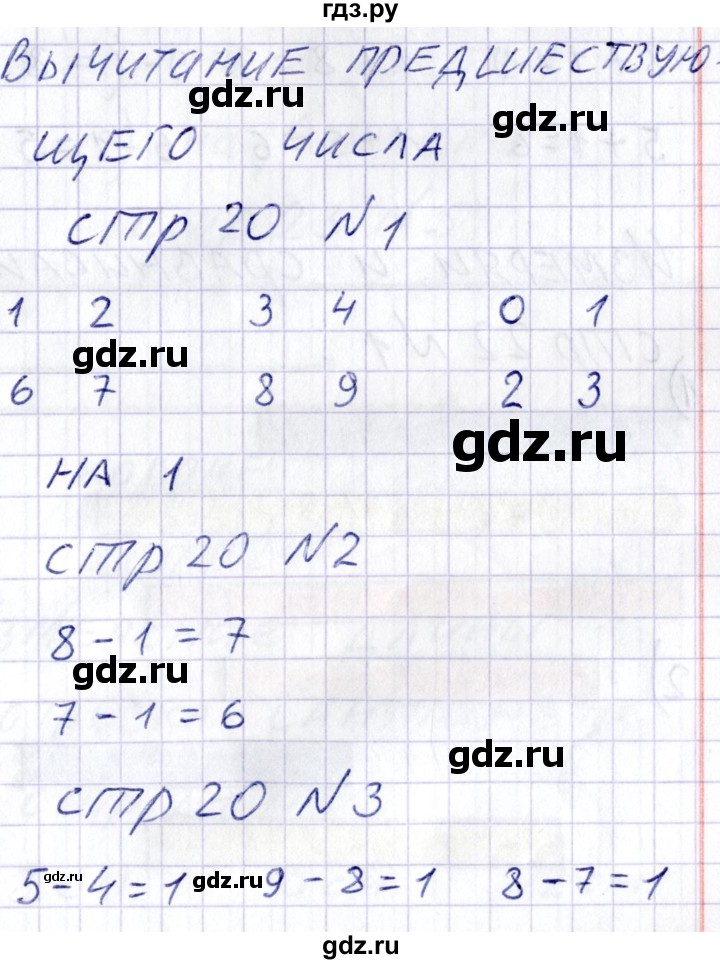 гдз.ру
ВЫЧИТАНИЕ ПРЕДШЕСТВУЮ-
gdz.ru
gdz.ru
ЩЕГО ЧИСЛА
стр 20 №1
1 2 3 4 0 1
gdz.ru
6 7 8 9 2 3
gdz.ru
НА 1
стр 20 №2
8 - 1 = 7
gdz.ru
7 - 1 = 6
gdz.ru
стр 20 №3
5 - 4 = 1 9 - 8 = 1 8 - 7 = 1
gdz.ru gdz.ru
gdz.ru